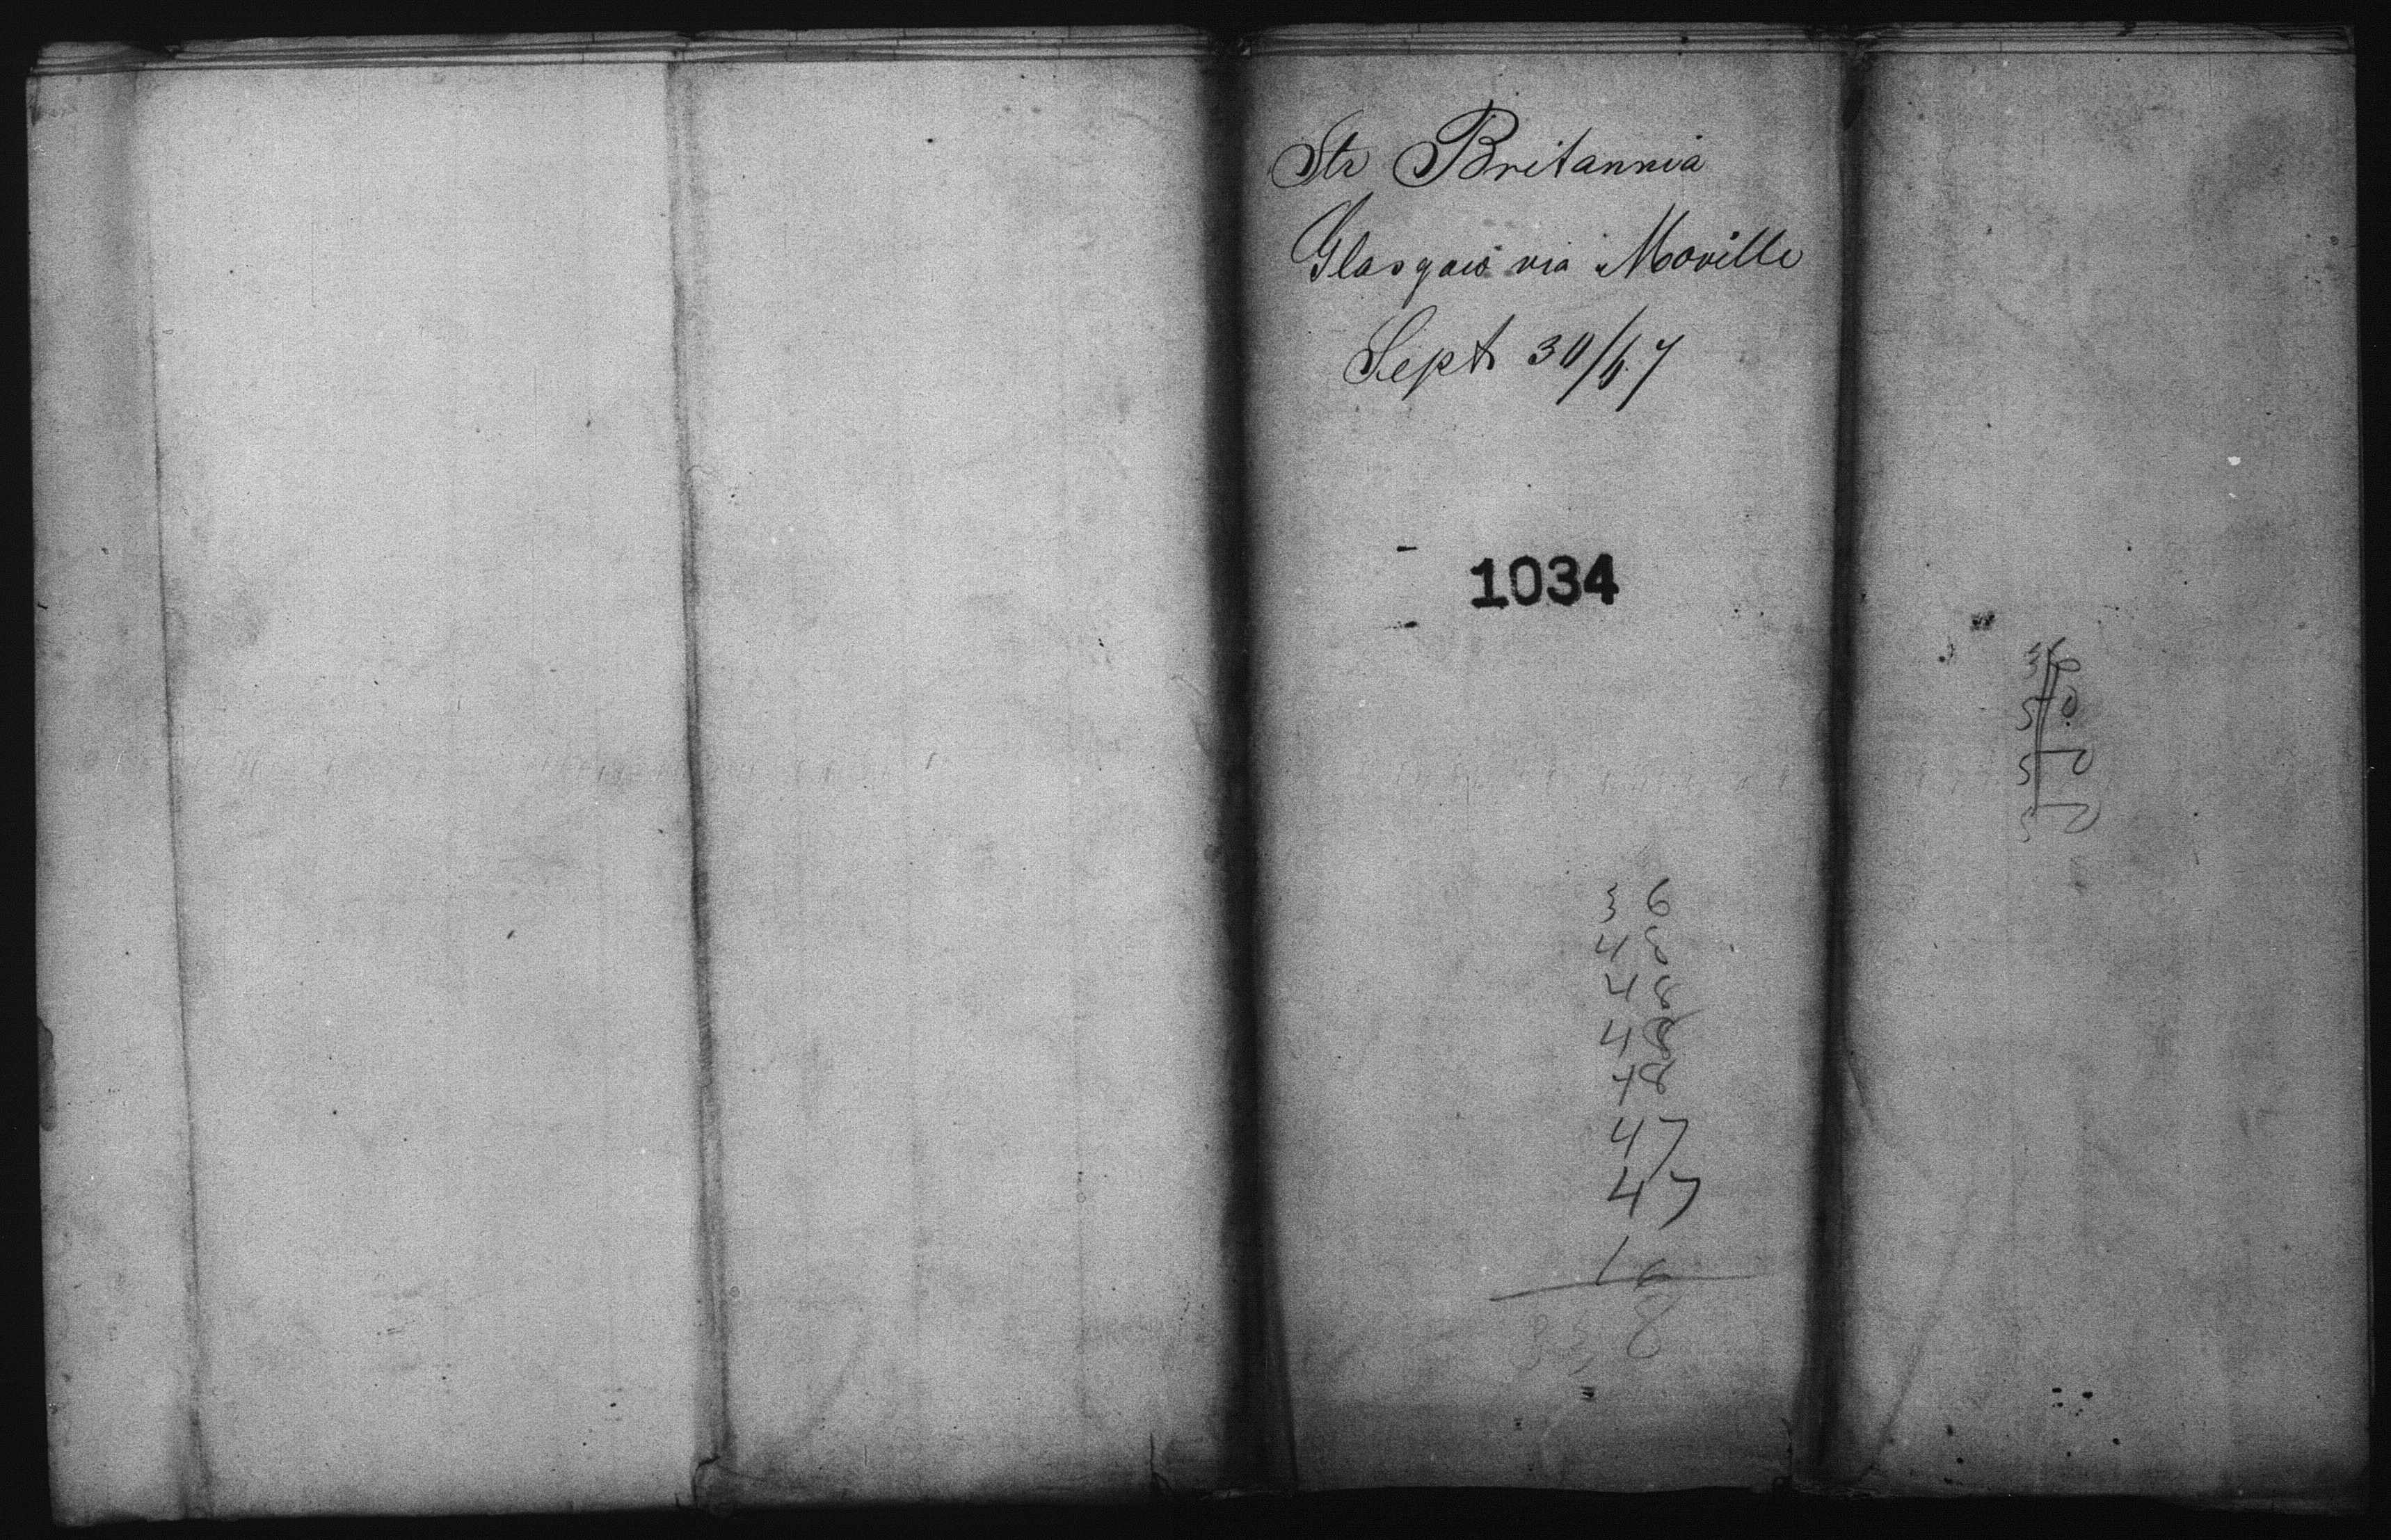 Str Britannia
Glasgow via Moville
Sept 30/67
1034
36
48
48
48
48
47
47
16
338